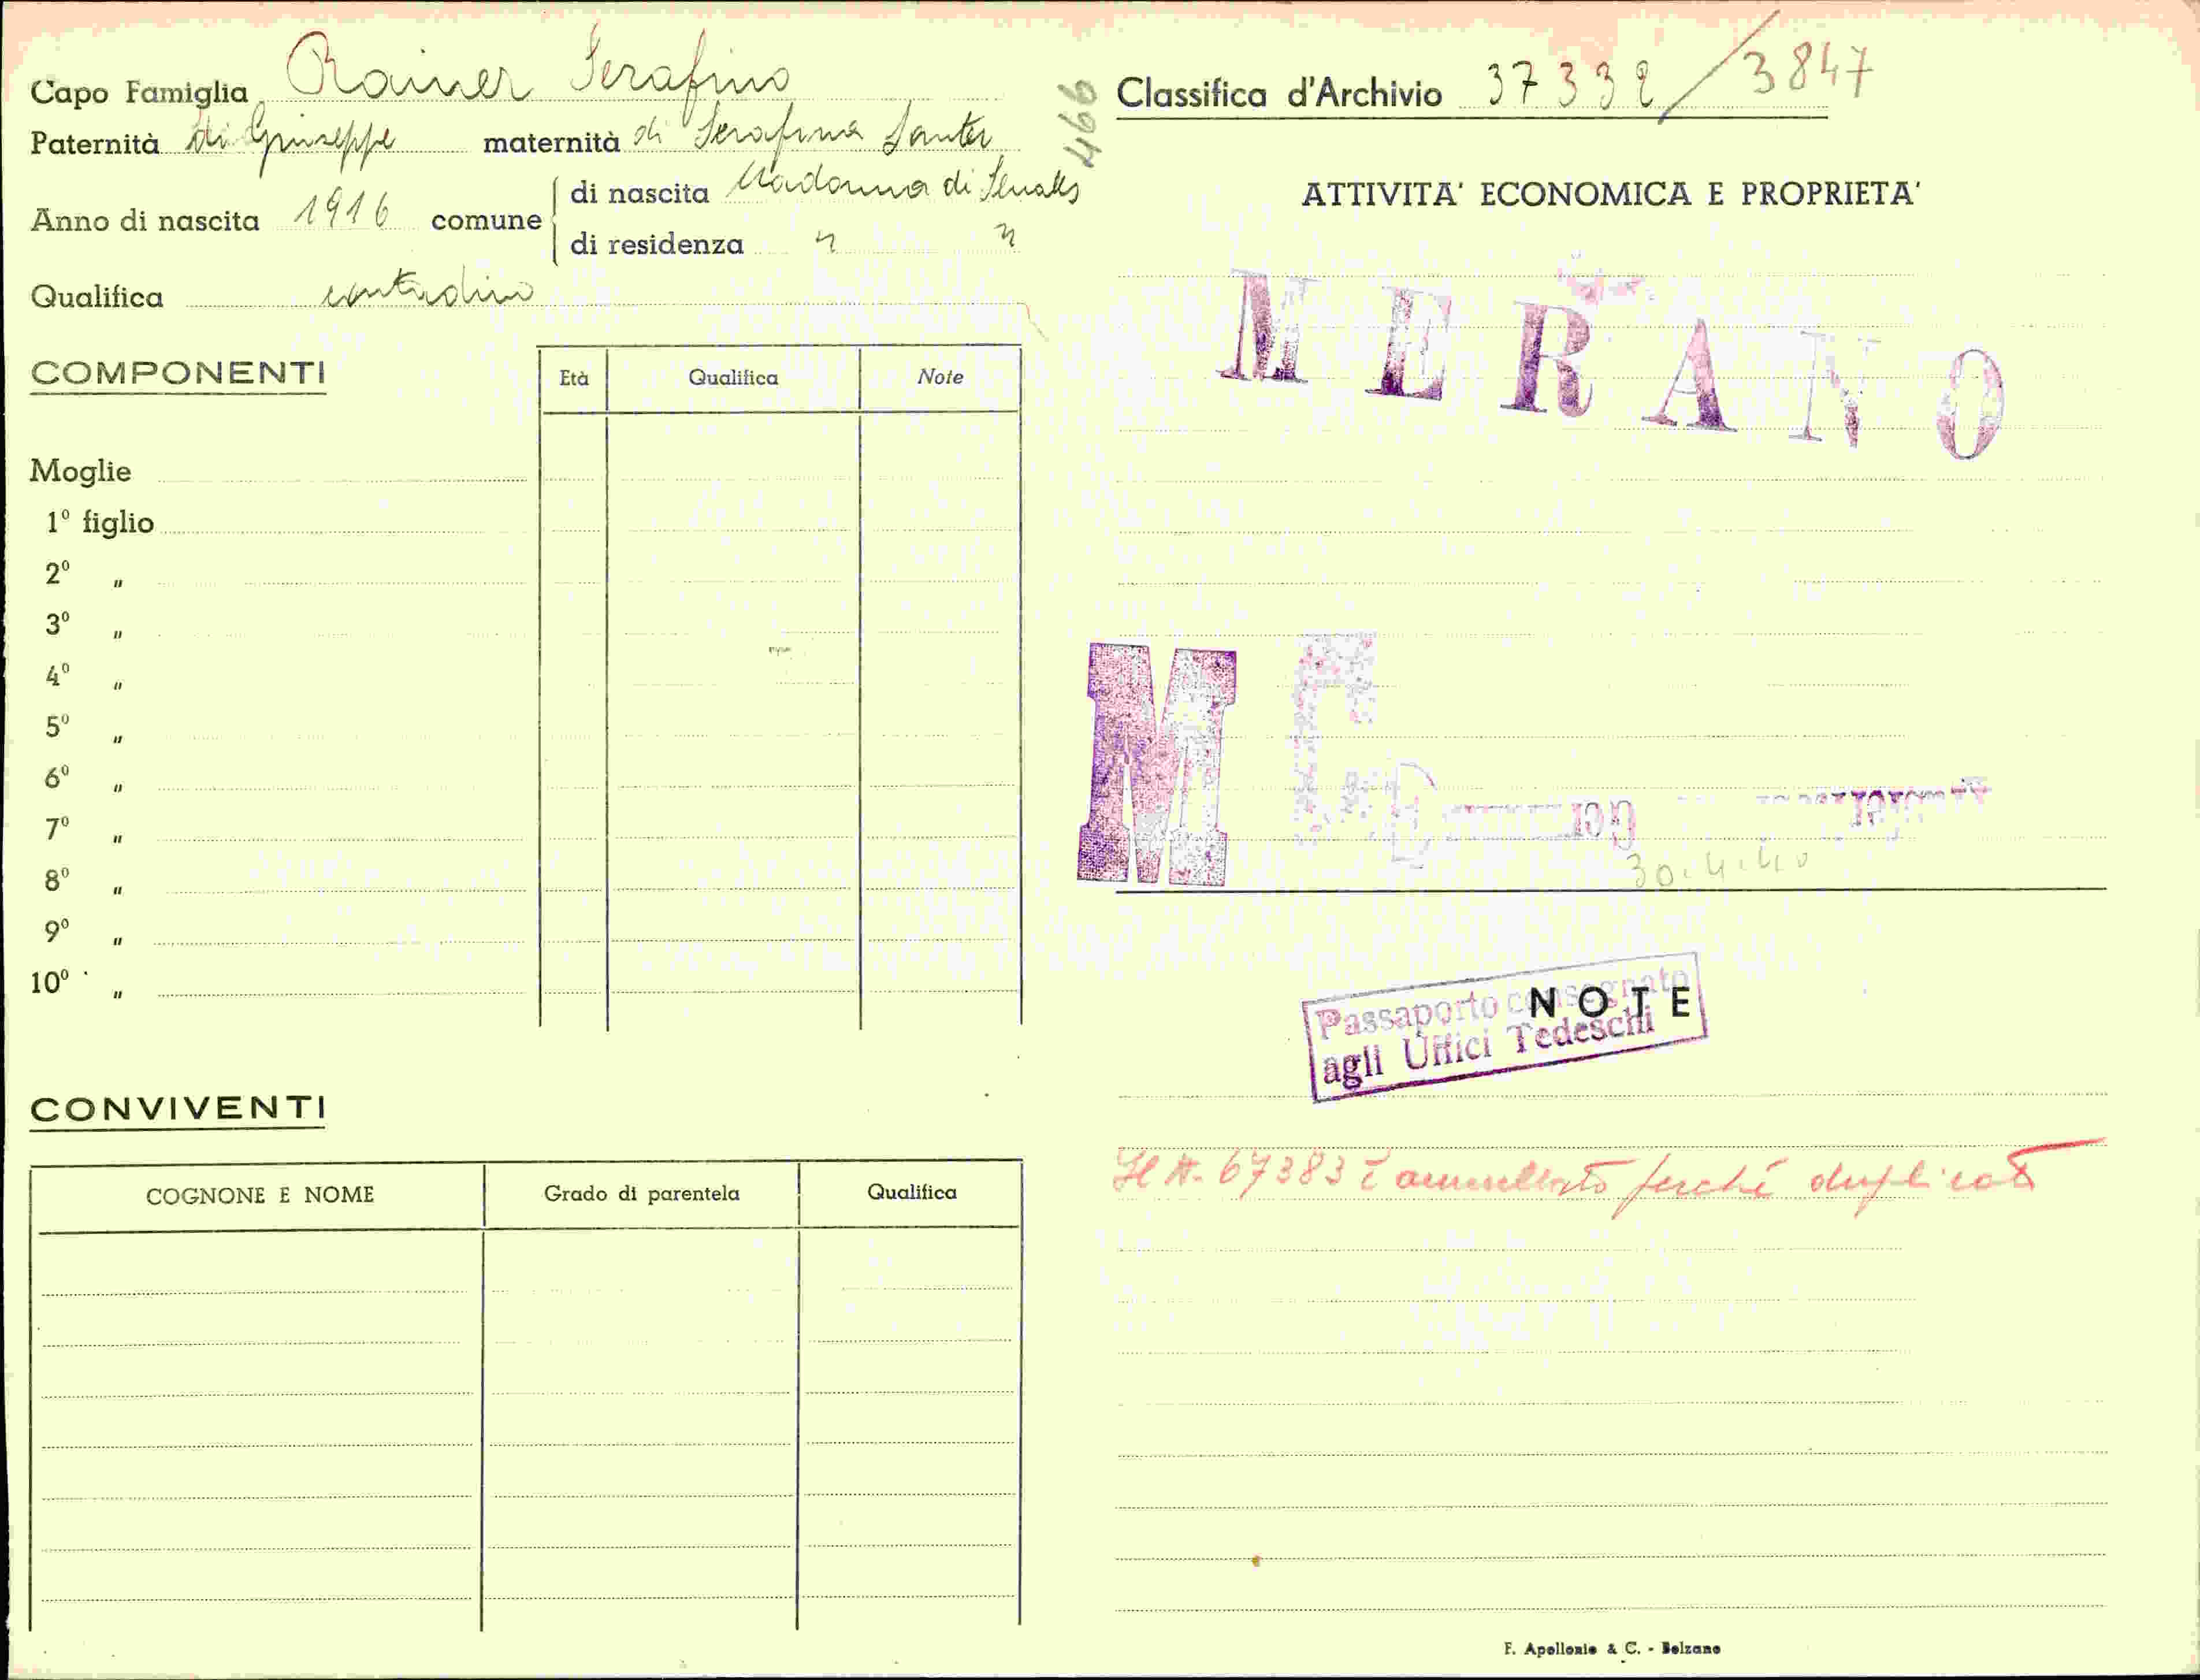 Capo Famiglia Rainer Serafino
Paternità di Giuseppe maternità di Serafina Santer
Anno di nascita 1916 comune
di nascita Madonna di Senales
di residenza " "
Qualifica contadino
COMPONENTI
Età Qualifica Note
Moglie
1º figlio
2º "
3º "
4º "
5º "
6º "
7º "
8º "
9º "
10º "
CONVIVENTI
COGNONE E NOME Grado di parentela Qualifica
466
Classifica d'Archivio 37332/3847
ATTIVITA' ECONOMICA E PROPRIETA'
MERANO
M
30.4.40
NOTE
Passaporto consegnato
agli Uffici Tedeschi
Il N. 67383 è annullato perché duplicato
F. Apollonio & C. - Bolzano